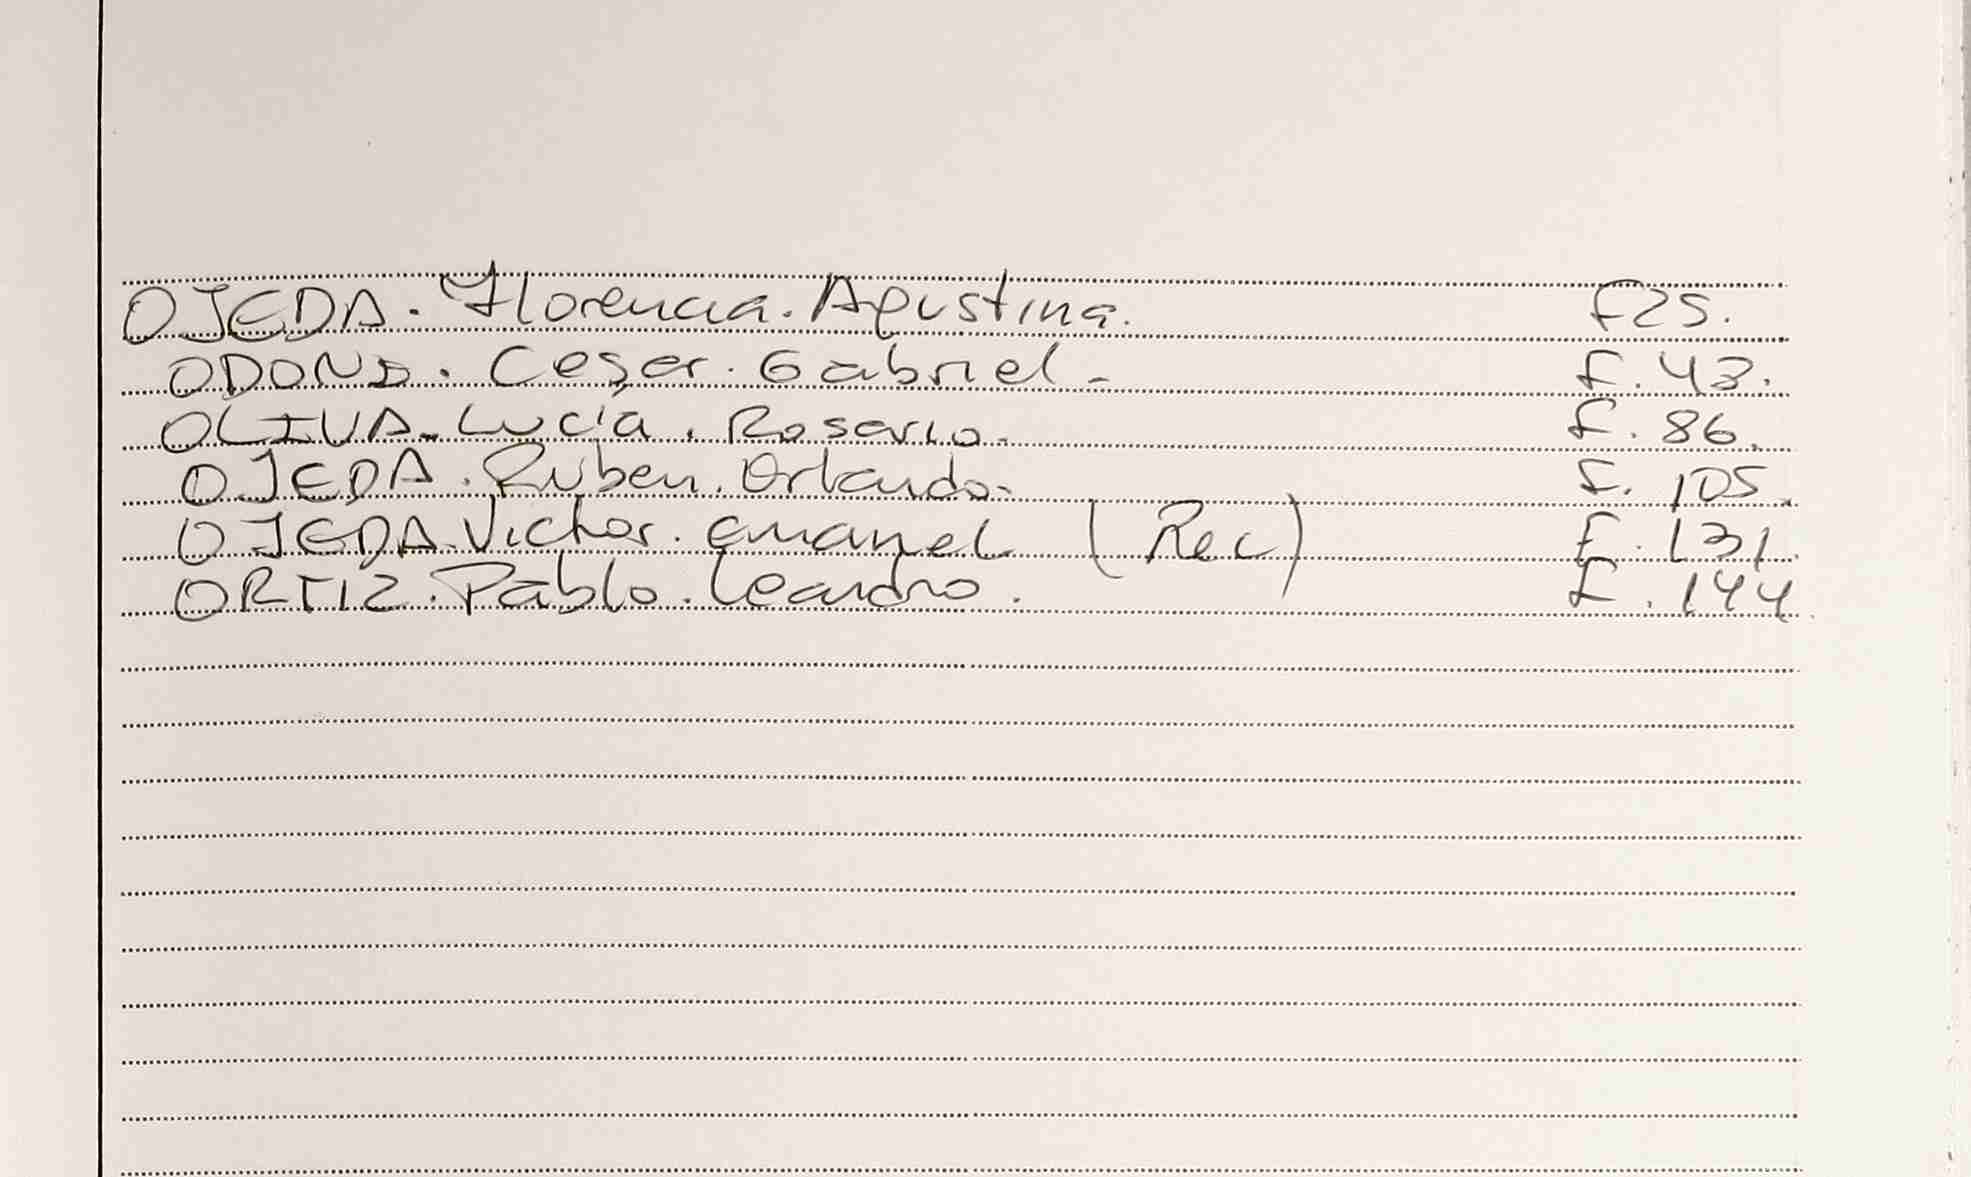 OJEDA. Florencia. Agustina. F25.
ODONE. Cesar. Gabriel - F. 43.
OLIVA. Lucía. Rosario. F. 86.
OJEDA. Ruben. Orlando. F. 105.
OJEDA. Victor. Emanuel (Rec) F. 131.
ORTIZ. Pablo. Leandro. F. 144.